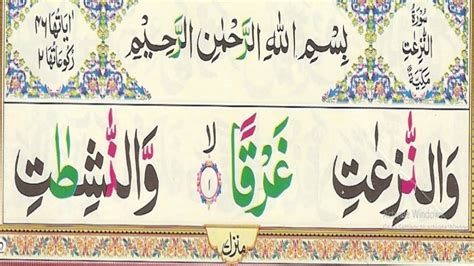 سُوْرَةُ النّٰزِعٰتِ مَكِّيَّةٌ
بِسْمِ اللّٰهِ الرَّحْمٰنِ الرَّحِيْمِ
اٰيَاتُهَا ٤٦ رُكُوْعَاتُهَا ٢
وَالنّٰزِعٰتِ غَرْقًا لا ١ وَّالنّٰشِطٰتِ
منزل